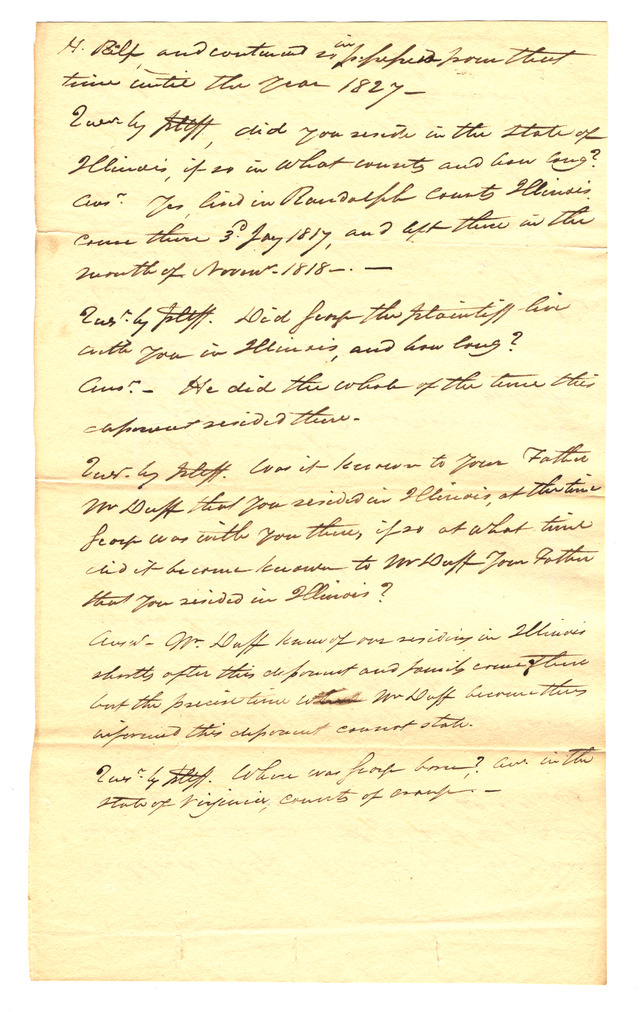 H. Relf, and continued so in possession from that
time until the Year 1827 —
Quesr. by Pltff, did you reside in the state of
Illinois, if so in what county and how long?
Ansr. Yes, lived in Randolph County Illinois
came there 3d. Jay 1817, and left there in the
month of Novemr. 1818 — . —
Quesr. by pltff. Did George the plaintiff live
with you in Illinois, and how long?
Ansr. — He did the whole of the time this
deponent resided there —
Quesr. by pltff. Was it known to your Father
Mr Duff that you resided in Illinois, at the time
George was with you there, if so at what time
did it become known to Mr Duff Your Father
that you resided in Illinois?
Answr — Mr. Duff knew of our residing in Illinois
shortly after this deponent and family came there
but the precise time Mr Duff became thus
informed this deponent cannot state.
Quesr. by pltff. Where was George born? Ans. in the
state of Virginia, County of Orange. —